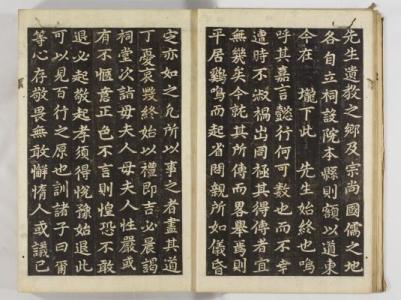 先生遺教之鄉及宗尚國儒之地
各自立祠設院本縣則額以道東
今在 壠下此 先生始終也嗚
呼其嘉言懿行何可數也而不幸
遭時不淑禍出罔極其得傳者宜
無幾矣今訑其所傳而畧舉焉則
平居鷄鳴而起省問親所如儀昏
定亦如之凡所以事之者盡其道
丁憂哀毀終始以禮即吉必晨謁
祠堂次詣母夫人母夫人性嚴或
有不愜意正色不言則惶恐不敢
退必起敬起孝須得悅豫始退此
可以見百行之原也訓諸子曰爾
等心存敬畏無敢懈惰人或議己